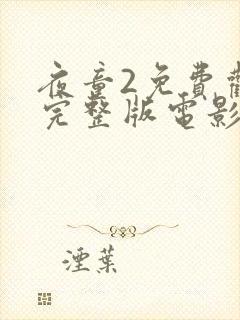 夜童2免費觀
完整版電影
湮葉